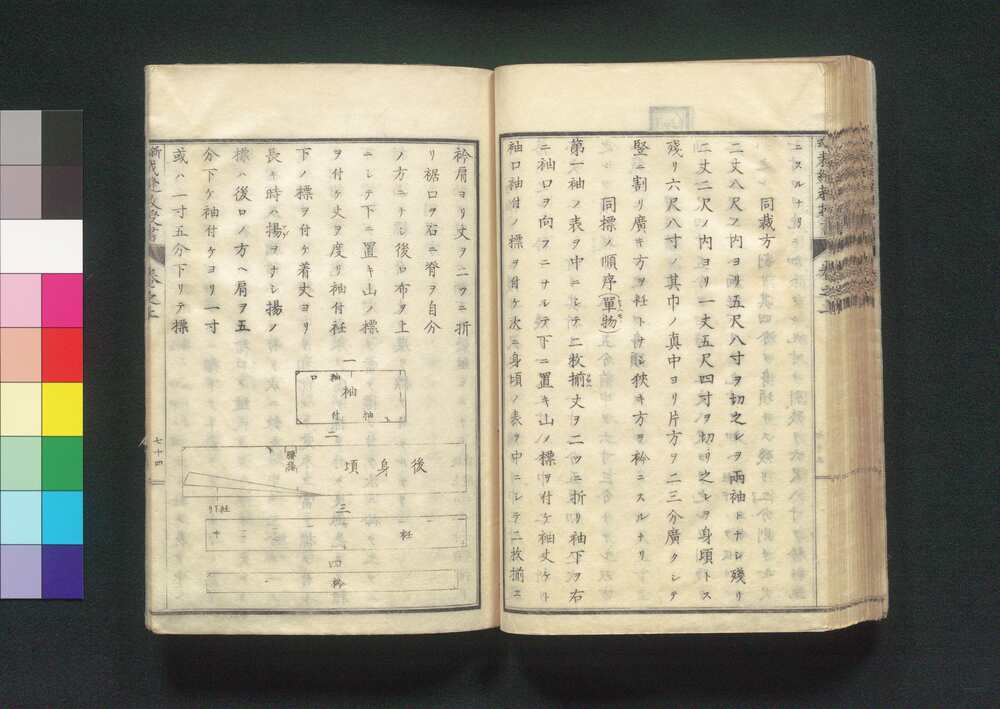 ニスルナリ
同裁方
二丈八尺ノ内ヨリ五尺八寸ヲ切之レヲ兩袖ニナシ殘リ
二丈二尺ノ内ヨリ一丈五尺四寸ヲ切リ之レヲ身頃トス
殘リ六尺八寸ノ其巾ノ真中ヨリ片方ヲ二三分廣クシテ
竪ニ割リ廣キ方ヲ衽トナシ狹キ方ヲ衿ニスルナリ
同標ノ順序(單物)
第一袖ノ表ヲ中ニシテ二枚揃丈ヲ二ツニ折リ袖下ヲ右
ニ袖口ヲ向フニナルテ下ニ置キ山ノ標ヲ付ケ袖丈ケト
袖口袖付ノ標ヲ付ケ次ニ身頃ノ表ヲ中ニシテ二枚揃エ
衿肩ヨリ丈ヲ二ツニ折
リ裾口ヲ右ニ脊ヲ自分
ノ方ニナシ後ロ布ヲ上
ニシテ下ニ置キ山ノ標
ヲ付ケ丈ヲ度リ袖付衽
下ノ標ヲ付ケ着丈ヨリ
長キ時ハ揚ヲナシ揚ノ
標ハ後ロノ方ヘ肩ヲ五
分下ケ袖付ケヨリ一寸
或ハ一寸五分下リテ標
一
袖
袖口
袖付
二
後身頃
衽下リ
三
衽
四
衿
卷之上
七十四